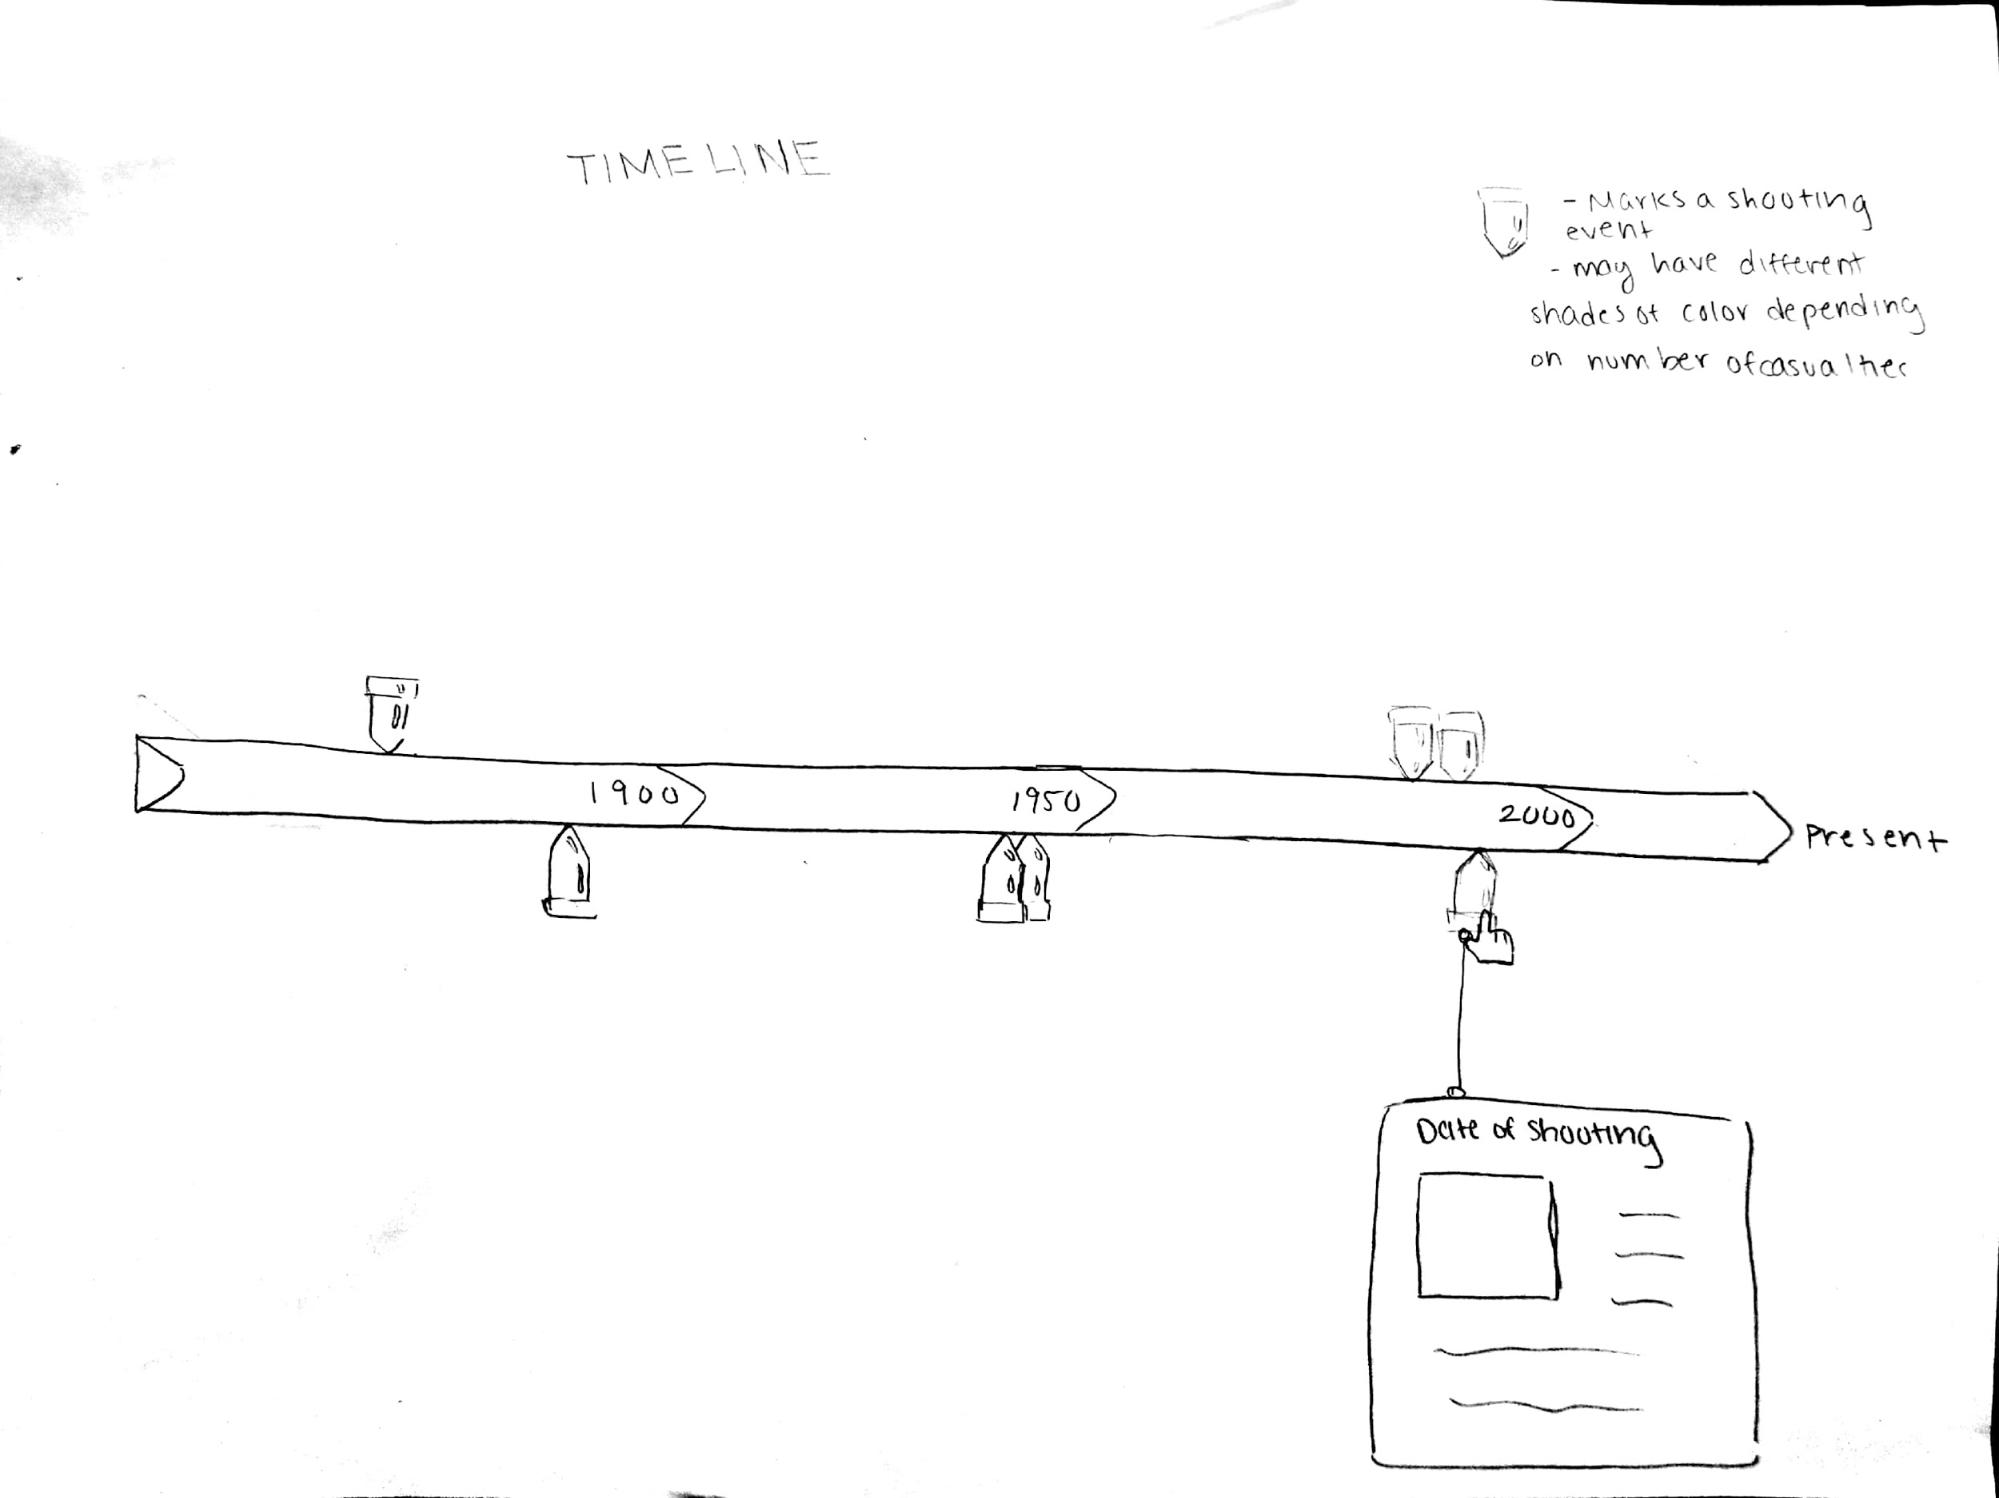 TIMELINE
- Marks a shooting
event
- may have different
shades of color depending
on number of casualties
1900
1950
2000
Present
Date of shooting